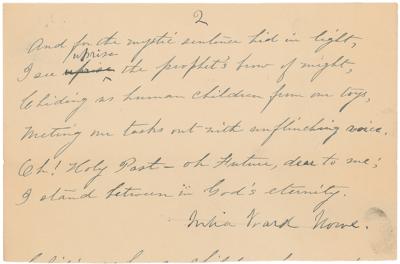 2
And for the mystic sentence hid in light,
uprise
I see uprise the prophet's brow of might,
Chiding as human children from our toys,
Meting our tasks out with unflinching voice.
Oh! Holy Past — oh Future, dear to me;
I stand between in God's eternity.
Julia Ward Howe.